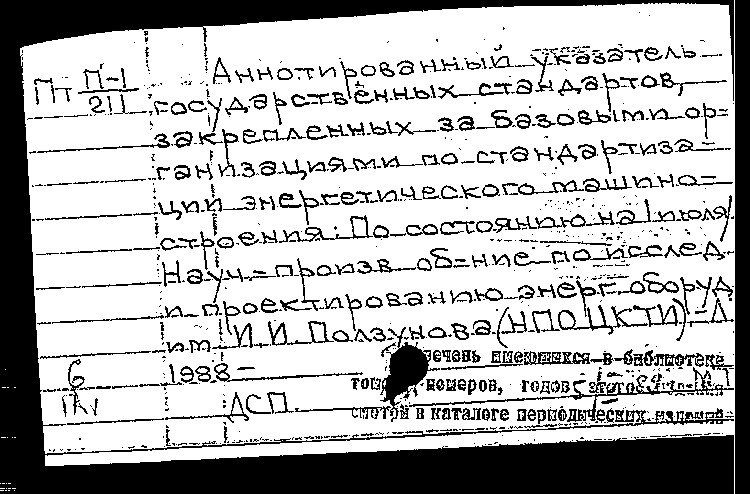 Пт П-1/211
Аннотированный указатель
государственных стандартов,
закрепленных за базовыми ор=
ганизациями по стандартиза=
ции энергетического машино=
строения: По состоянию на 1 июля/
Науч.=произв об=ние по исслед
и проектированию энерг. оборуд
им И.И. Ползунова (НПО ЦКТИ).-Л
1988-
6
ДСП.
имеющихся в библиотеке
номеров, годов
смотри в каталоге периодических изданий